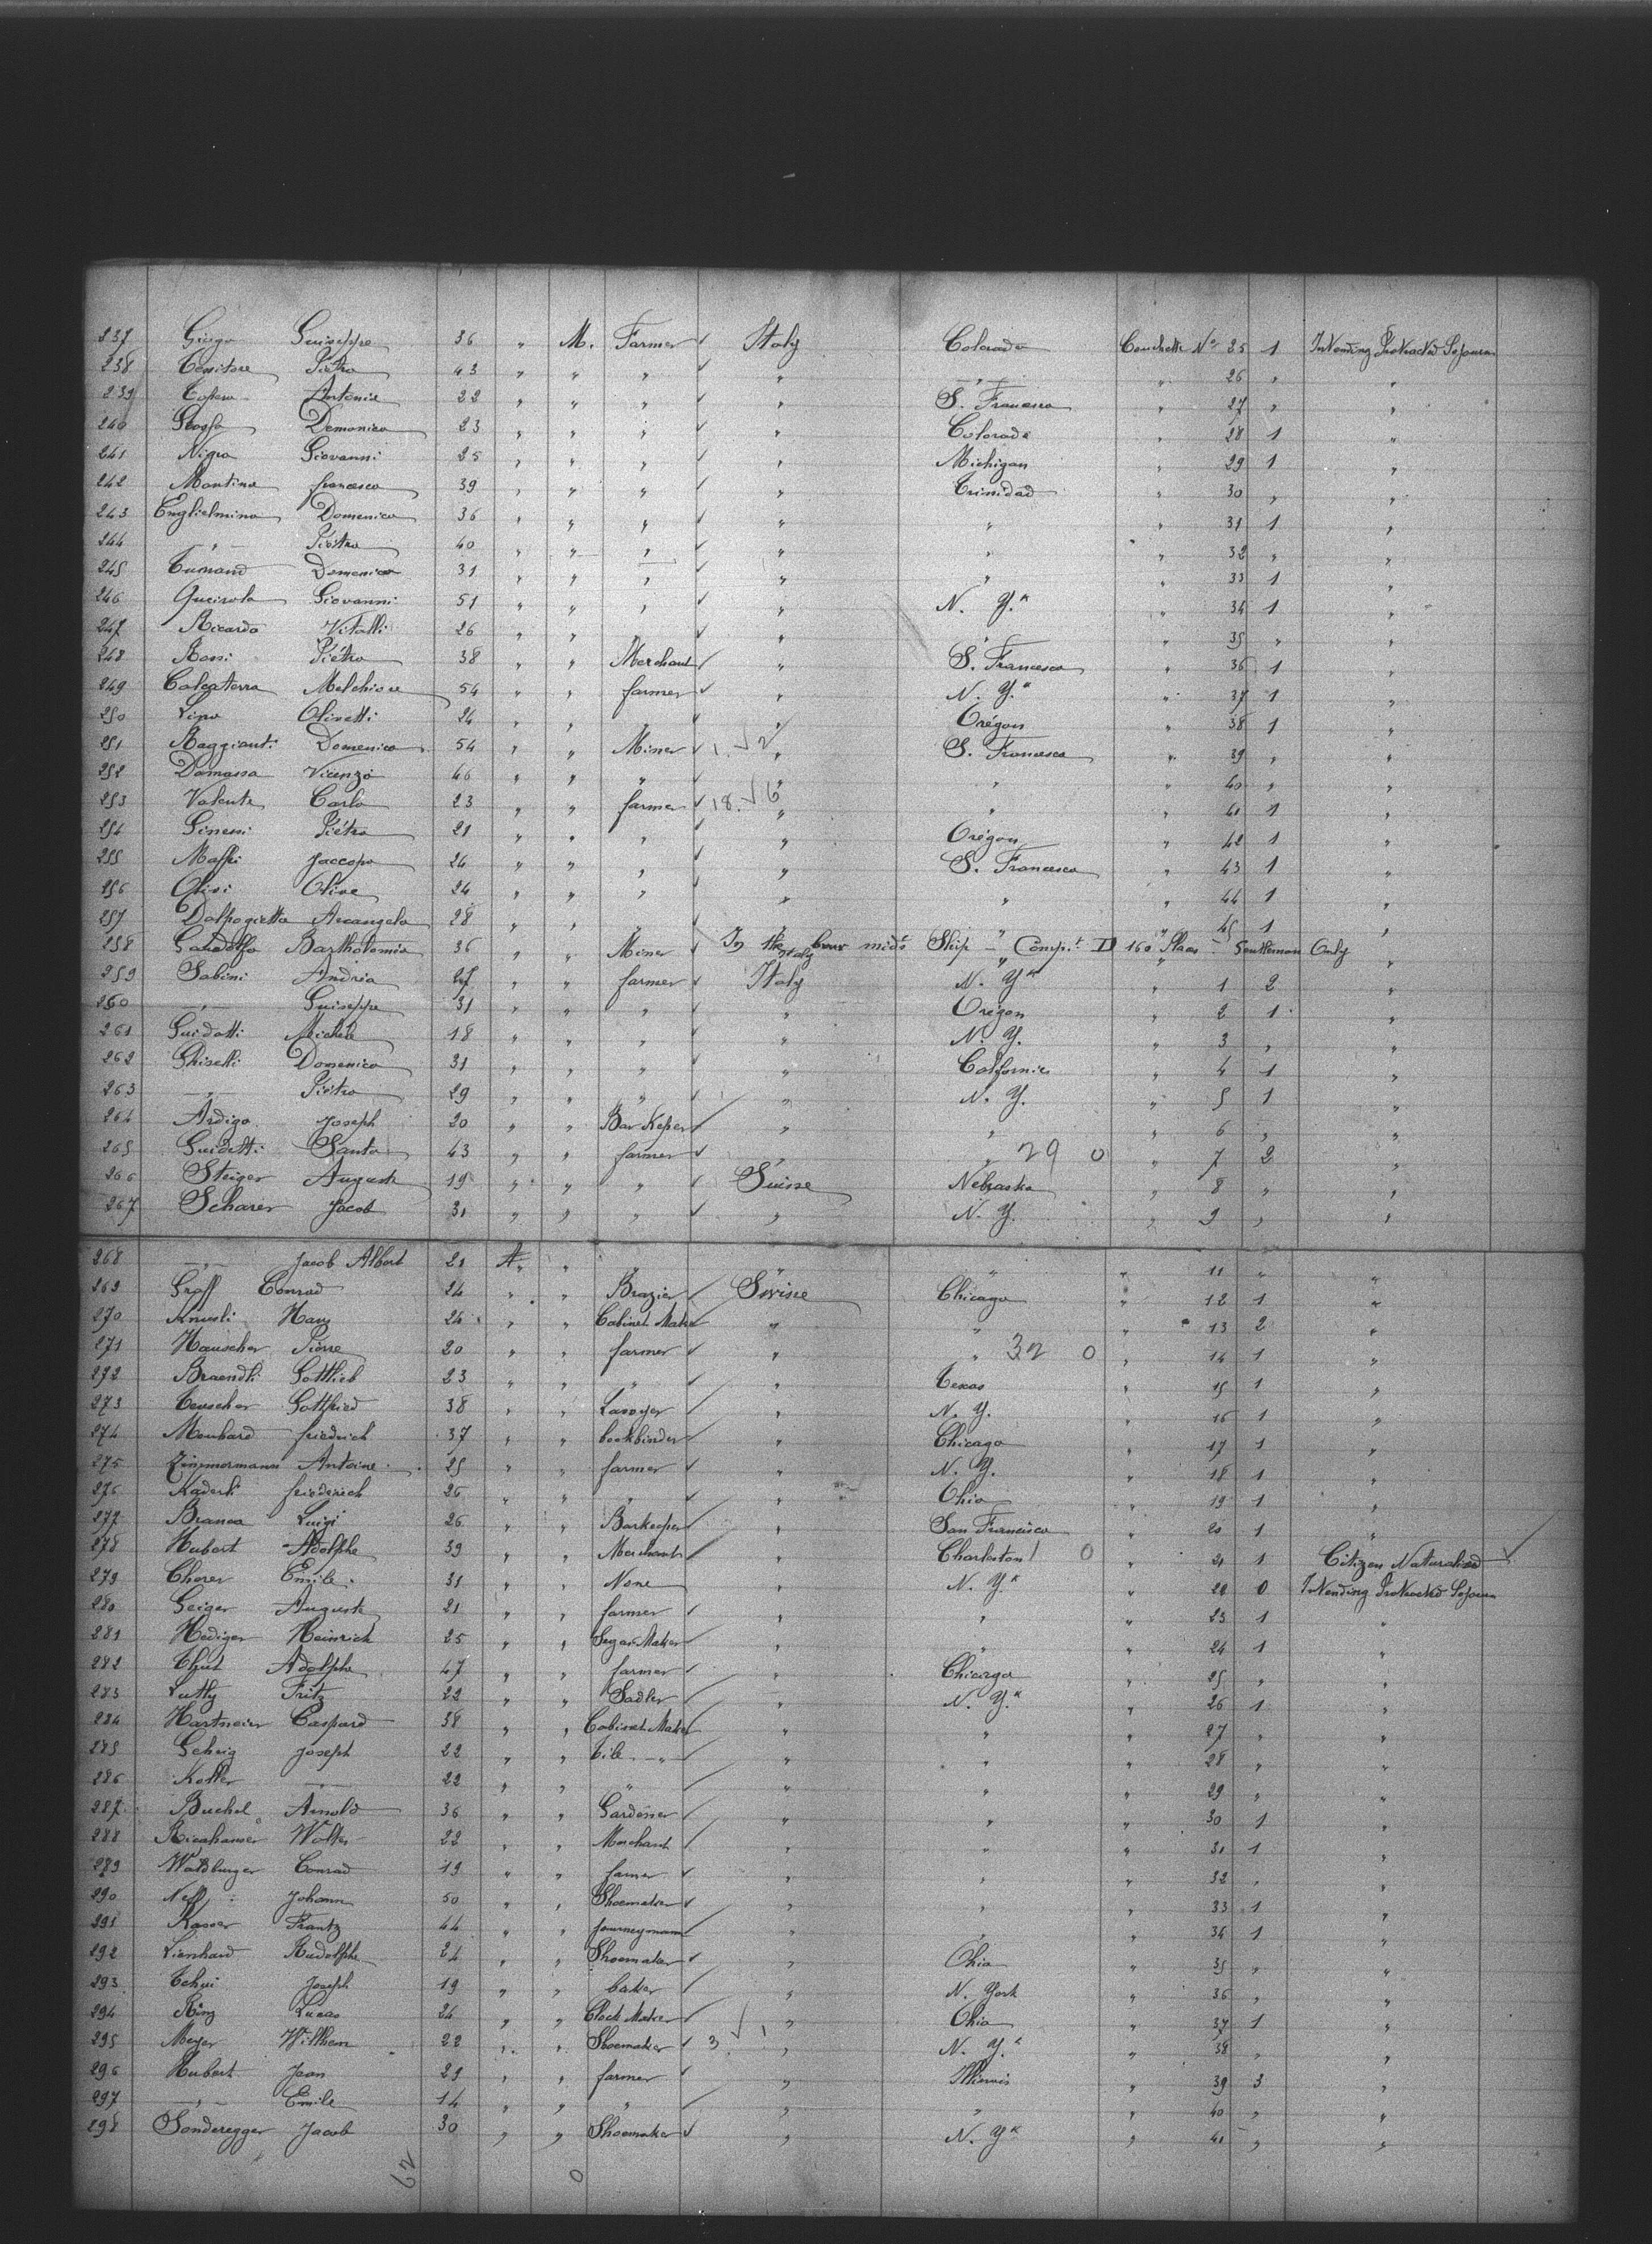 237 Giuseppe 36 " M. Farmer ✓ Italy Colorado Couchette No 25 1 Intending Protracted Sojourn
238 Pietro 43 " " " ✓ " " " 26 " "
239 Antonio 22 " " " ✓ " S. Francesco " 27 " "
240 Domenico 23 " " " ✓ " Colorado " 28 1 "
241 Nigra Giovanni 25 " " " ✓ " Michigan " 29 1 "
242 Martino francesco 39 " " " ✓ " Trinidad " 30 " "
243 Domenico 36 " " " ✓ " " " 31 1 "
244 — " — Piétro 40 " " " ✓ " " " 32 " "
245 Domenico 31 " " " ✓ " " " 33 1 "
246 Queirola Giovanni 51 " " " ✓ " N. Y.k " 34 1 "
247 Ricardo Vitalli 26 " " ✓ " " " 35 " "
248 Rossi Piétro 38 " " Merchant ✓ " S. Francesco " 36 1 "
249 Calcaterra Melchiore 54 " " farmer ✓ " N. Y.k " 37 1 "
250 Lipo Olivetti 24 " " " ✓ " Orégon " 38 1 "
251 Raggianti Domenico 54 " " Miner ✓ 1 ✓ 2 " S. Francesco " 39 " "
252 Damassa Vicenzo 46 " " " ✓ " " " 40 " "
253 Valente Carlo 23 " " farmer ✓ 18 ✓ 6 " " " 41 1 "
254 Piétro 21 " " " ✓ " Orégon " 42 1 "
255 Maffei Jaccopo 26 " " " ✓ " S. Francesco " 43 1 "
256 Olivi Olive 24 " " " ✓ " " " 44 1 "
257 Dalpogietto Arcangelo 28 " " " ✓ " " " 45 1 "
258 Gandolfo Bartholomio 36 " " Miner ✓ In the Italy mids Ship — Comp.t D 160 Places — Gentleman Only
259 Sabini Andria 27 " " farmer ✓ Italy N. Yk " 1 2 "
260 — " — Guiseppe 31 " " " ✓ " Orégon " 2 1 "
261 Guidotti Michele 18 " " " ✓ " N. Y. " 3 " "
262 Ghiselli Domenico 31 " " " ✓ " California " 4 1 "
263 — " — Piétro 29 " " " ✓ " N. Y. " 5 1 "
264 Ardigo Joseph 20 " " Bar Keper ✓ " " " 6 " "
265 Guidotti Santo 43 " " farmer ✓ " " 29 0 " 7 2 "
266 Steiger Auguste 19 " " " ✓ Suisse Nebraska " 8 " "
267 Scharer Jacob 31 " " " ✓ " N. Y. " 9 " "
268 — " — Jacob Albert 21 A. " " " " " 11 " "
269 Graff Conrad 24 " " Brazier ✓ Swisse Chicago " 12 1 "
270 Knusli Hans 24 " " Cabinet Maker ✓ " " " 13 2 "
271 Hauscher Pierre 20 " " farmer ✓ " " 32 0 " 14 1 "
272 Braendli Gottlieb 23 " " " ✓ " Texas " 15 1 "
273 Teuscher Gottfried 38 " " Lawyer ✓ " N. Y. " 16 1 "
274 Menhard friedrich 37 " " bookbinder ✓ " Chicago " 17 1 "
275 Zimmermann Antoine 25 " " farmer ✓ " N. Y. " 18 1 "
276 Kaderli friederich 26 " " " ✓ " Ohio " 19 1 "
277 Branca Luigi 26 " " Barkeeper ✓ " San Francisco " 20 1 "
278 Hubert Adolphe 39 " " Merchant ✓ " Charleston 1 0 " 21 1 Citizen Naturalized ✓
279 Chorer Emile 31 " " None " N. Yk " 22 0 Intending Protracted Sojourn
280 Geiger Auguste 21 " " farmer ✓ " " " 23 1 "
281 Hediger Heinrich 25 " " Segar Maker ✓ " " " 24 1 "
282 Chut Adolphe 47 " " farmer ✓ " Chicago " 25 " "
283 Luthy Fritz 22 " " Sadler ✓ " N. Y.k " 26 1 "
284 Hartmeier Caspard 38 " " Cabinet Maker ✓ " " " 27 " "
285 Gehrig Joseph 22 " " Tile — " — ✓ " " " 28 " "
286 Koller — " — 22 " " " ✓ " " " 29 " "
287 Buchel Arnold 36 " " Gardener ✓ " " " 30 1 "
288 Walter 22 " " Merchant ✓ " " " 31 1 "
289 Waldburger Conrad 19 " " farmer ✓ " " " 32 " "
290 Neff Johann 50 " " Shoemaker ✓ " " " 33 1 "
291 Kasser Frantz 44 " " Journeymann ✓ " " " 34 1 "
292 Lienhard Rudolphe 24 " " Shoemaker ✓ " Ohio " 35 " "
293 Tchui Joseph 19 " " baker ✓ " N. York " 36 " "
294 Ring Lucas 24 " " Clock Maker ✓ " Ohio " 37 1 "
295 Meyer Wilhem 22 " " Shoemaker ✓ 3 ✓ 1 " N. Y.k " 38 " "
296 Hubert Jean 29 " " farmer ✓ " Illinois " 39 3 "
297 — " — Emile 14 " " " ✓ " " " 40 " "
298 Sonderegger Jacob 30 " " Shoemaker ✓ " N. Yk " 41 " "
62 0